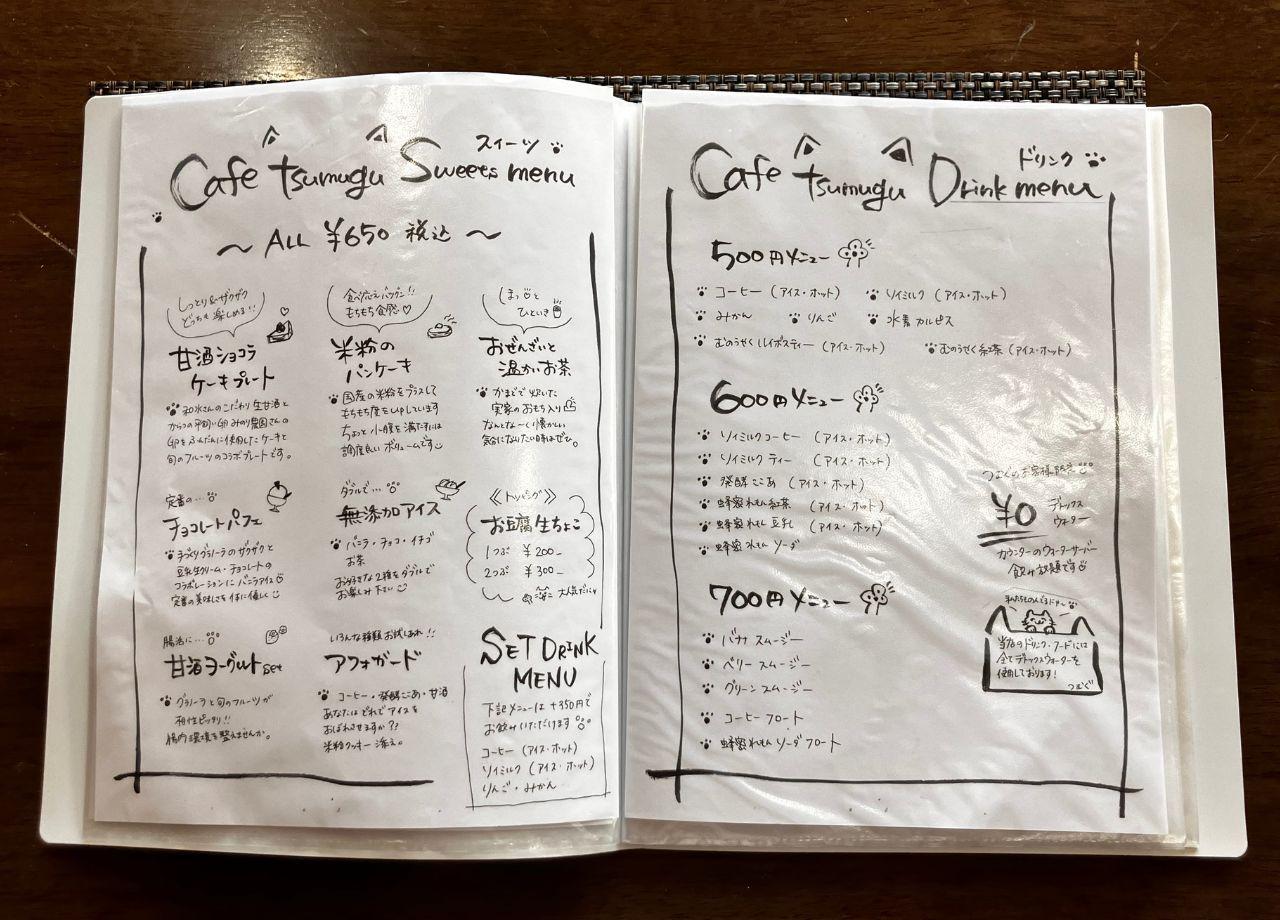 スイーツ
Cafe tsumugu Sweets menu
～ ALL ¥650 税込 ～
しっとり&ザクザク
どっちも楽しめる!!
甘酒ショコラ
ケーキプレート
和水さんのこだわり生甘酒と
からつの平飼い卵みのり農園さんの
卵をふんだんに使用したケーキと
旬のフルーツのコラボプレートです。
食べ応えバツグン!!
もちもち食感♡
米粉の
パンケーキ
国産の米粉をプラスして
もちもち度をupしています
ちょっと小腹を満たすには
調度良いボリュームです
まったりと
ひといき
おぜんざいと
温かいお茶
かまどで炊いた
実家のおもち入り
なんとな～く懐かしい
気分になりたい時はぜひ。
定番の…
チョコレートパフェ
手づくりグラノーラのザクザクと
豆乳生クリーム・チョコレートの
コラボレーションにバニラアイス
定番の美味しさを体に優しく
ダブルで…
無添加アイス
バニラ・チョコ・イチゴ
お茶
お好きな2種をダブルで
お楽しみ下さい
《トッピング》
お豆腐生ちょこ
1つぶ ¥200-
2つぶ ¥300-
大人気だにゃ
腸活に…
甘酒ヨーグルトset
グラノーラと旬のフルーツが
相性ピッタリ!!
腸内環境を整えませんか。
いろんな種類お試しあれ!!
アフォガード
コーヒー・発酵ここあ・甘酒
あなたはどれでアイスを
おぼれさせますか??
米粉クッキー添え。
SET DRINK
MENU
下記メニューは+350円で
お飲みいただけます
コーヒー (アイス・ホット)
ソイミルク (アイス・ホット)
りんご・みかん
ドリンク
Cafe tsumugu Drink menu
500円メニュー
コーヒー (アイス・ホット)
ソイミルク (アイス・ホット)
みかん
りんご
水素カルピス
むのうやくルイボスティー (アイス・ホット)
むのうやく紅茶 (アイス・ホット)
600円メニュー
ソイミルクコーヒー (アイス・ホット)
ソイミルクティー (アイス・ホット)
発酵ここあ (アイス・ホット)
蜂蜜れもん紅茶 (アイス・ホット)
蜂蜜れもん豆乳 (アイス・ホット)
蜂蜜れもんソーダ
つむぐのお客様限定
¥0 デトックス
ウォーター
カウンターのウォーターサーバー
飲み放題です
700円メニュー
バナナスムージー
ベリースムージー
グリーンスムージー
コーヒーフロート
蜂蜜れもんソーダフロート
私たちものんでるにゃ～
当店のドリンク・フードには
全てデトックスウォーターを
使用しております!
つむぐ